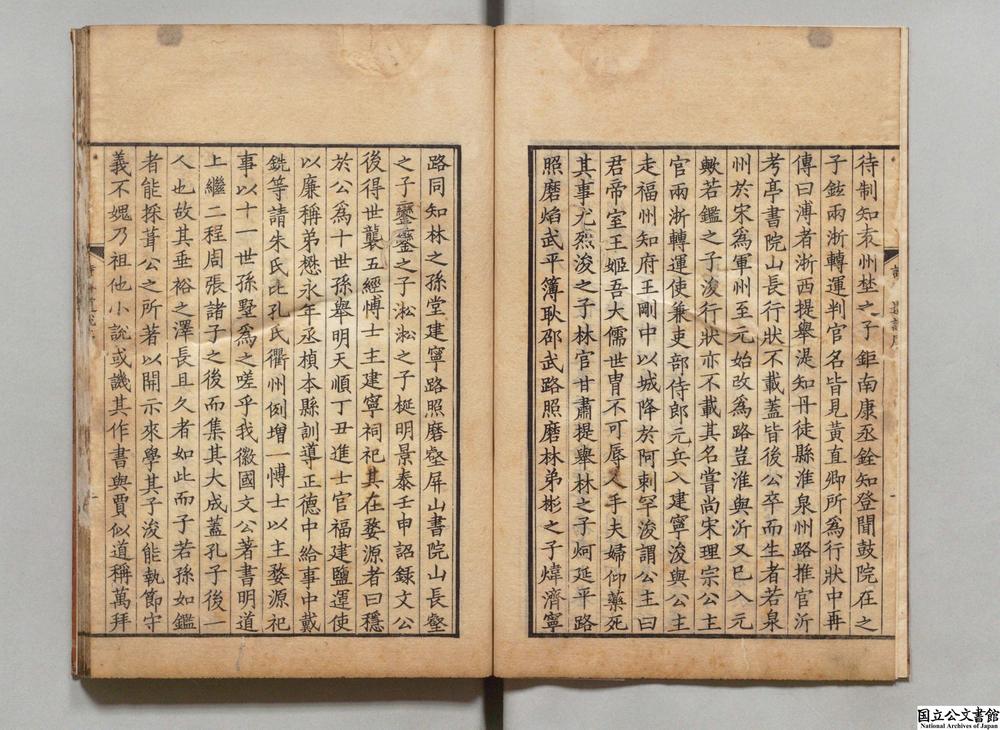 待制知袁州埜之子鉅南康丞銓知登聞鼓院在之
子鉉兩浙轉運判官名皆見黃直卿所為行狀中再
傳曰溥者浙西提舉湜知丹徒縣淮泉州路推官沂
考亭書院山長行狀不載蓋皆後公卒而生者若泉
州於宋為軍州至元始改為路豈淮與沂又巳入元
歟若鑑之子浚行狀亦不載其名嘗尚宋理宗公主
官兩浙轉運使兼吏部侍郎元兵入建寧浚與公主
走福州知府王剛中以城降於阿剌罕浚謂公主曰
君帝室王姬吾大儒世胄不可辱又手夫婦仰藥死
其事尤烈浚之子林官甘肅提舉林之子炣延平路
照磨焰武平簿耿邵武路照磨林弟彬之子煒濟寧
路同知林之孫堂建寧路照磨壑屏山書院山長壑
之子鑾鑾之子淞淞之子梴明景泰壬申詔錄文公
後得世襲五經博士主建寧祠祀其在婺源者曰穩
於公為十世孫舉明天順丁丑進士官福建鹽運使
以廉稱弟懋永年丞楨本縣訓導正德中給事中戴
銑等請朱氏走孔氏衢州例增一博士以主婺源祀
事以十一世孫墅為之嗟乎我徽國文公著書明道
上繼二程周張諸子之後而集其大成蓋孔子後一
人也故其垂裕之澤長且久者如此而子若孫如鑑
者能採葺公之所著以開示來學其子浚能執節守
義不媿乃祖他小說或譏其作書與賈似道稱萬拜
国立公文書館
National Archives of Japan